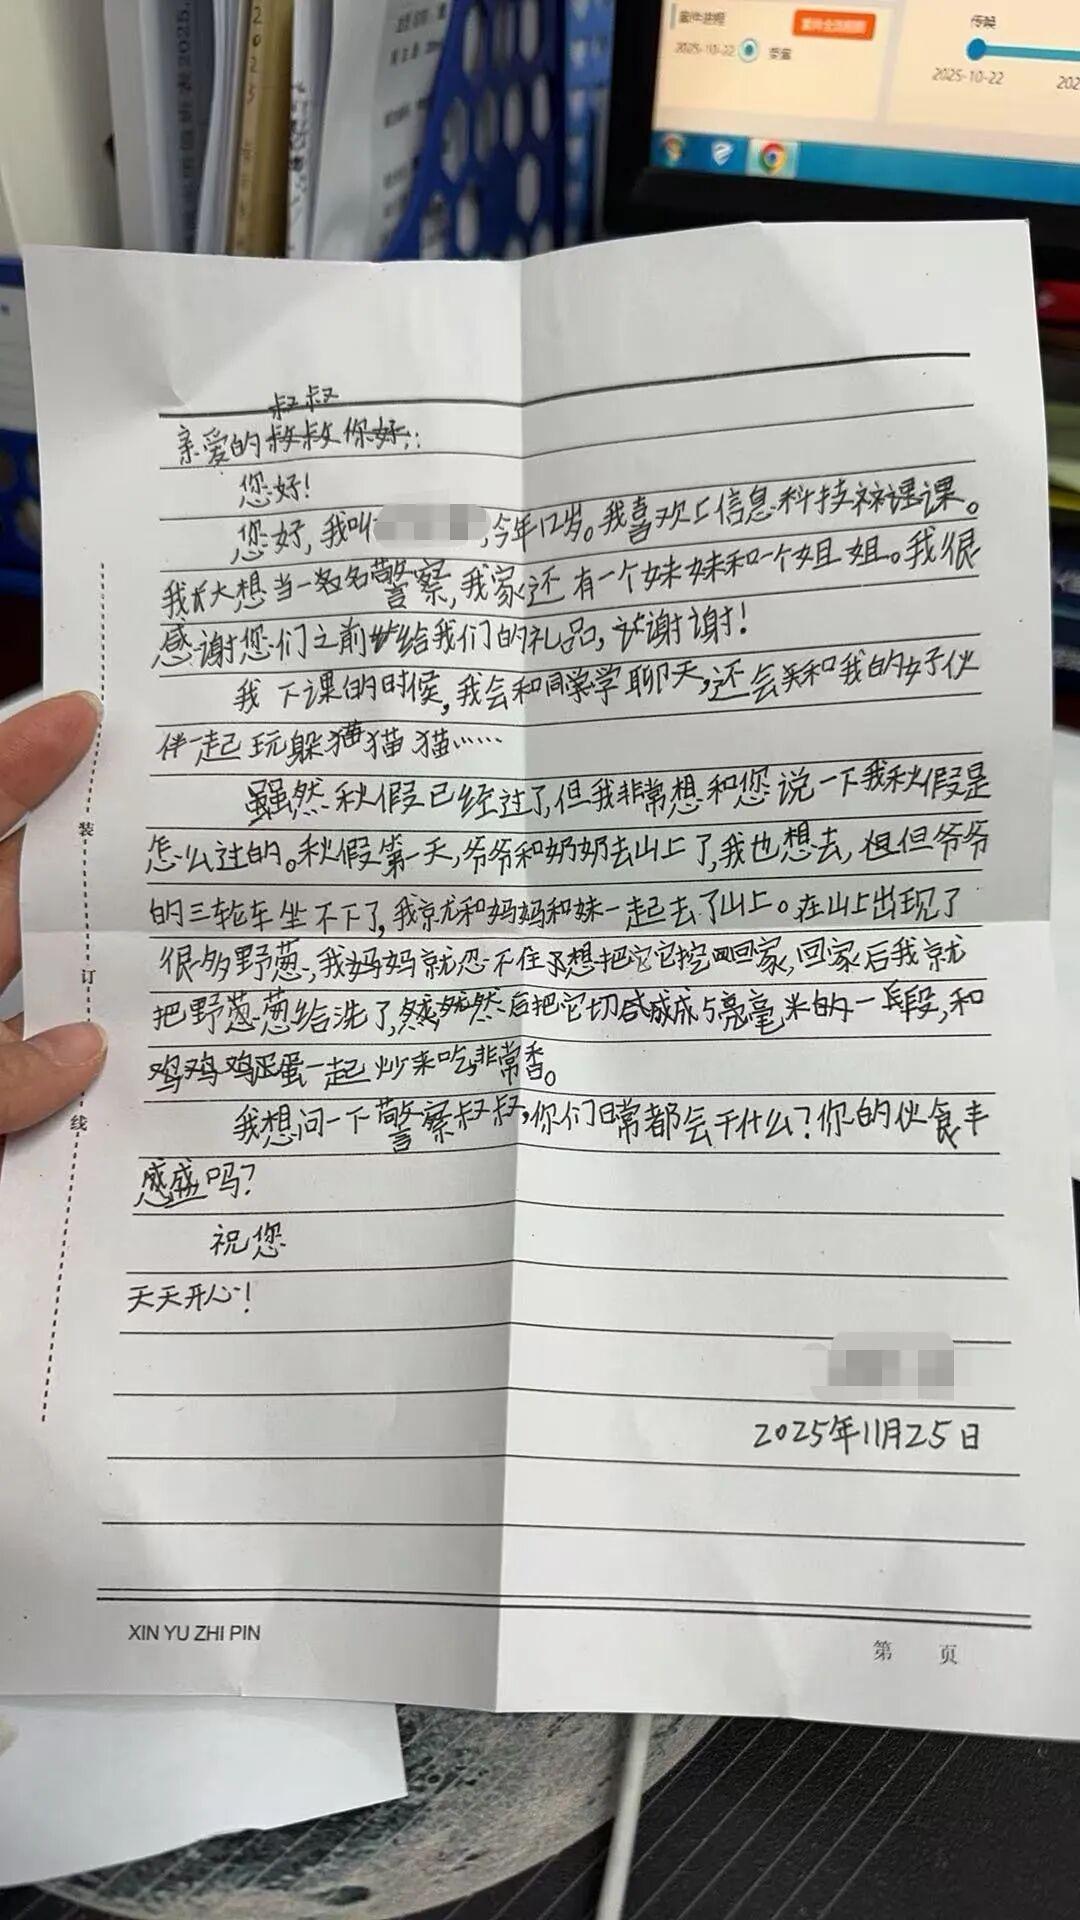 2025.
2025
案件进程
2025-10-22
受案
传唤
2025-10-22
202
叔叔
亲爱的叔叔你好:
您好!
您好,我叫 ,今年12岁。我喜欢上信息科技这课课。
我长大想当一名名警察,我家还有一个妹妹和一个姐姐。我很
感谢您们之前给我们的礼品,谢谢!
我下课的时候,我会和同学聊天,还会和我的好伙
伴一起玩躲猫猫猫……
虽然秋假已经过了,但我非常想和您说一下我秋假是
怎么过的。秋假第一天,爷爷和奶奶去山上了,我也想去,但但爷爷
的三轮车坐不下了,我就和妈妈和妹一起去了山上。在山上出现了
很多野葱,我妈妈就忍不住想把它它挖回回家,回家后我就
把野葱葱给洗了,然然后把它切成成5毫毫米的一段,和
鸡鸡鸡蛋蛋一起炒来吃,非常香。
我想问一下警察叔叔,你们日常都会干什么?你的伙食丰
盛吗?
祝您
天天开心!
2025年11月25日
装
订
线
XIN YU ZHI PIN
第 页